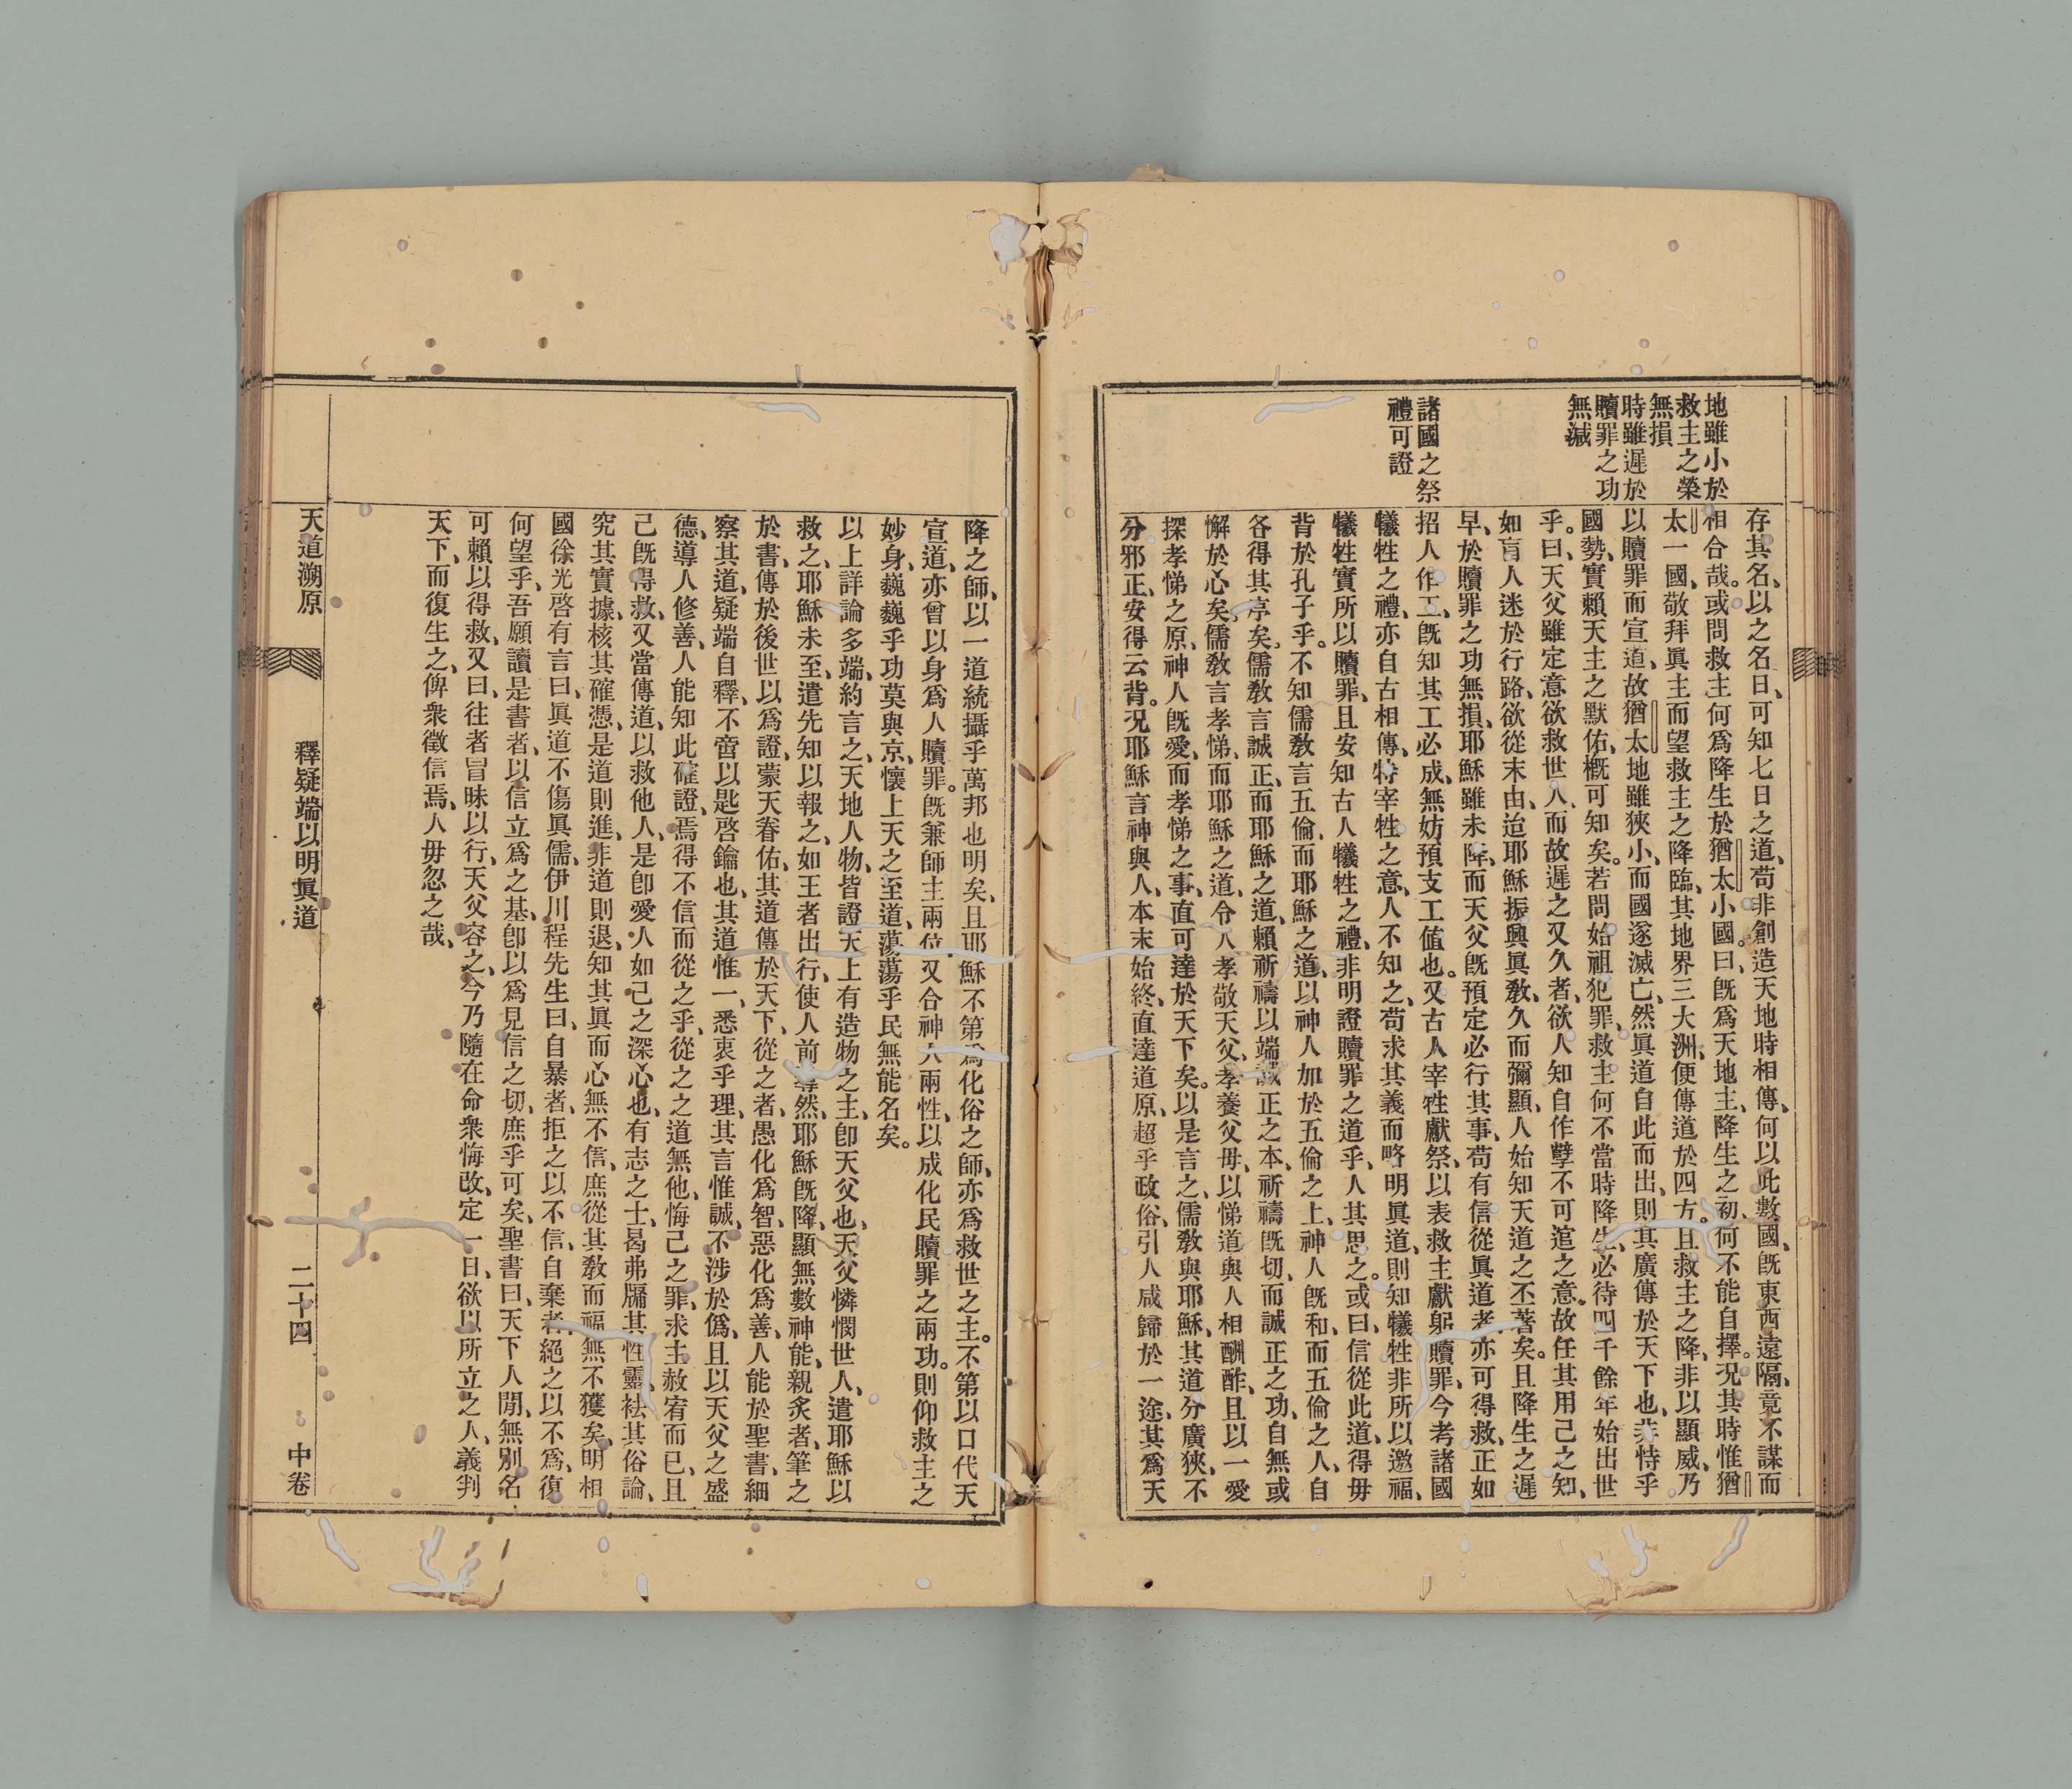 地雖小於
救主之榮
無損
時雖遲於
贖罪之功
無減
諸國之祭
禮可證
存其名、以之名日、可知七日之道、苟非創造天地時相傳、何以此數國、既東西遠隔、竟不謀而
相合哉。或問救主何爲降生於猶太小國。曰、既爲天地主、降生之初、何不能自擇。況其時惟猶
太一國、敬拜眞主而望救主之降臨、其地界三大洲、便傳道於四方。且救主之降、非以顯威、乃
以贖罪而宣道、故猶太地雖狹小、而國遂滅亡、然眞道自此而出、則其廣傳於天下也、非恃乎
國勢、實賴天主之默佑、概可知矣。若問始祖犯罪、救主何不當時降生、必待四千餘年始出世
乎。曰、天父雖定意欲救世人、而故遲之又久者、欲人知自作孽不可逭之意。故任其用己之知、
如盲人迷於行路、欲從末由、迨耶穌振興眞敎、久而彌顯、人始知天道之丕著矣。且降生之遲
早、於贖罪之功無損、耶穌雖未降、而天父既預定必行其事、苟有信從眞道者、亦可得救、正如
招人作工、既知其工必成、無妨預支工值也。又古人宰牲獻祭、以表救主獻躬贖罪、今考諸國
犧牲之禮、亦自古相傳、特宰牲之意、人不知之、苟求其義而略明眞道、則知犧牲非所以邀福、
犧牲實所以贖罪、且安知古人犧牲之禮、非明證贖罪之道乎、人其思之。或曰信從此道、得毋
背於孔子乎。不知儒敎言五倫、而耶穌之道、以神人加於五倫之上、神人既和、而五倫之人、自
各得其序矣。儒敎言誠正、而耶穌之道、賴祈禱以端誠正之本、祈禱既切、而誠正之功、自無或
懈於心矣、儒敎言孝悌、而耶穌之道、令人孝敬天父、孝養父母、以悌道與人相酬酢、且以一愛
探孝悌之原、神人既愛、而孝悌之事、直可達於天下矣。以是言之、儒敎與耶穌、其道分廣狹、不
分邪正、安得云背。況耶穌言神與人、本末始終、直達道原、超乎政俗、引人咸歸於一途、其爲天
降之師、以一道統攝乎萬邦也明矣、且耶穌不第爲化俗之師、亦爲救世之主。不第以口代天
宣道、亦曾以身爲人贖罪。既兼師主兩位、又合神人兩性、以成化民贖罪之兩功。則仰救主之
妙身、巍巍乎功莫與京、懷上天之至道、蕩蕩乎民無能名矣。
以上詳論多端、約言之、天地人物、皆證天上有造物之主、卽天父也、天父憐憫世人、遣耶穌以
救之、耶穌未至、遣先知以報之、如王者出行、使人前導然、耶穌既降、顯無數神能、親炙者、筆之
於書、傳於後世以爲證、蒙天眷佑、其道傳於天下、從之者、愚化爲智、惡化爲善、人能於聖書、細
察其道、疑端自釋、不啻以匙啓鑰也、其道惟一、悉衷乎理、其言惟誠、不涉於僞、且以天父之盛
德、導人修善、人能知此確證、焉得不信而從之乎、從之之道無他、悔己之罪、求主赦宥而已、且
己既得救、又當傳道、以救他人、是卽愛人如己之深心也、有志之士、曷弗牖其性靈、袪其俗論、
究其實據、核其確憑、是道則進、非道則退、知其眞而心無不信、庶從其敎而福無不獲矣、明相
國徐光啓有言曰、眞道不傷眞儒、伊川程先生曰、自暴者、拒之以不信、自棄者、絕之以不爲、復
何望乎、吾願讀是書者、以信立爲之基、卽以爲見信之切、庶乎可矣、聖書曰、天下人閒、無別名
可賴以得救、又曰、往者冒昧以行、天父容之、今乃隨在命衆悔改、定一日、欲以所立之人、義判
天下、而復生之、俾衆徵信焉、人毋忽之哉、
天道溯原
釋疑端以明眞道
二十四
中卷